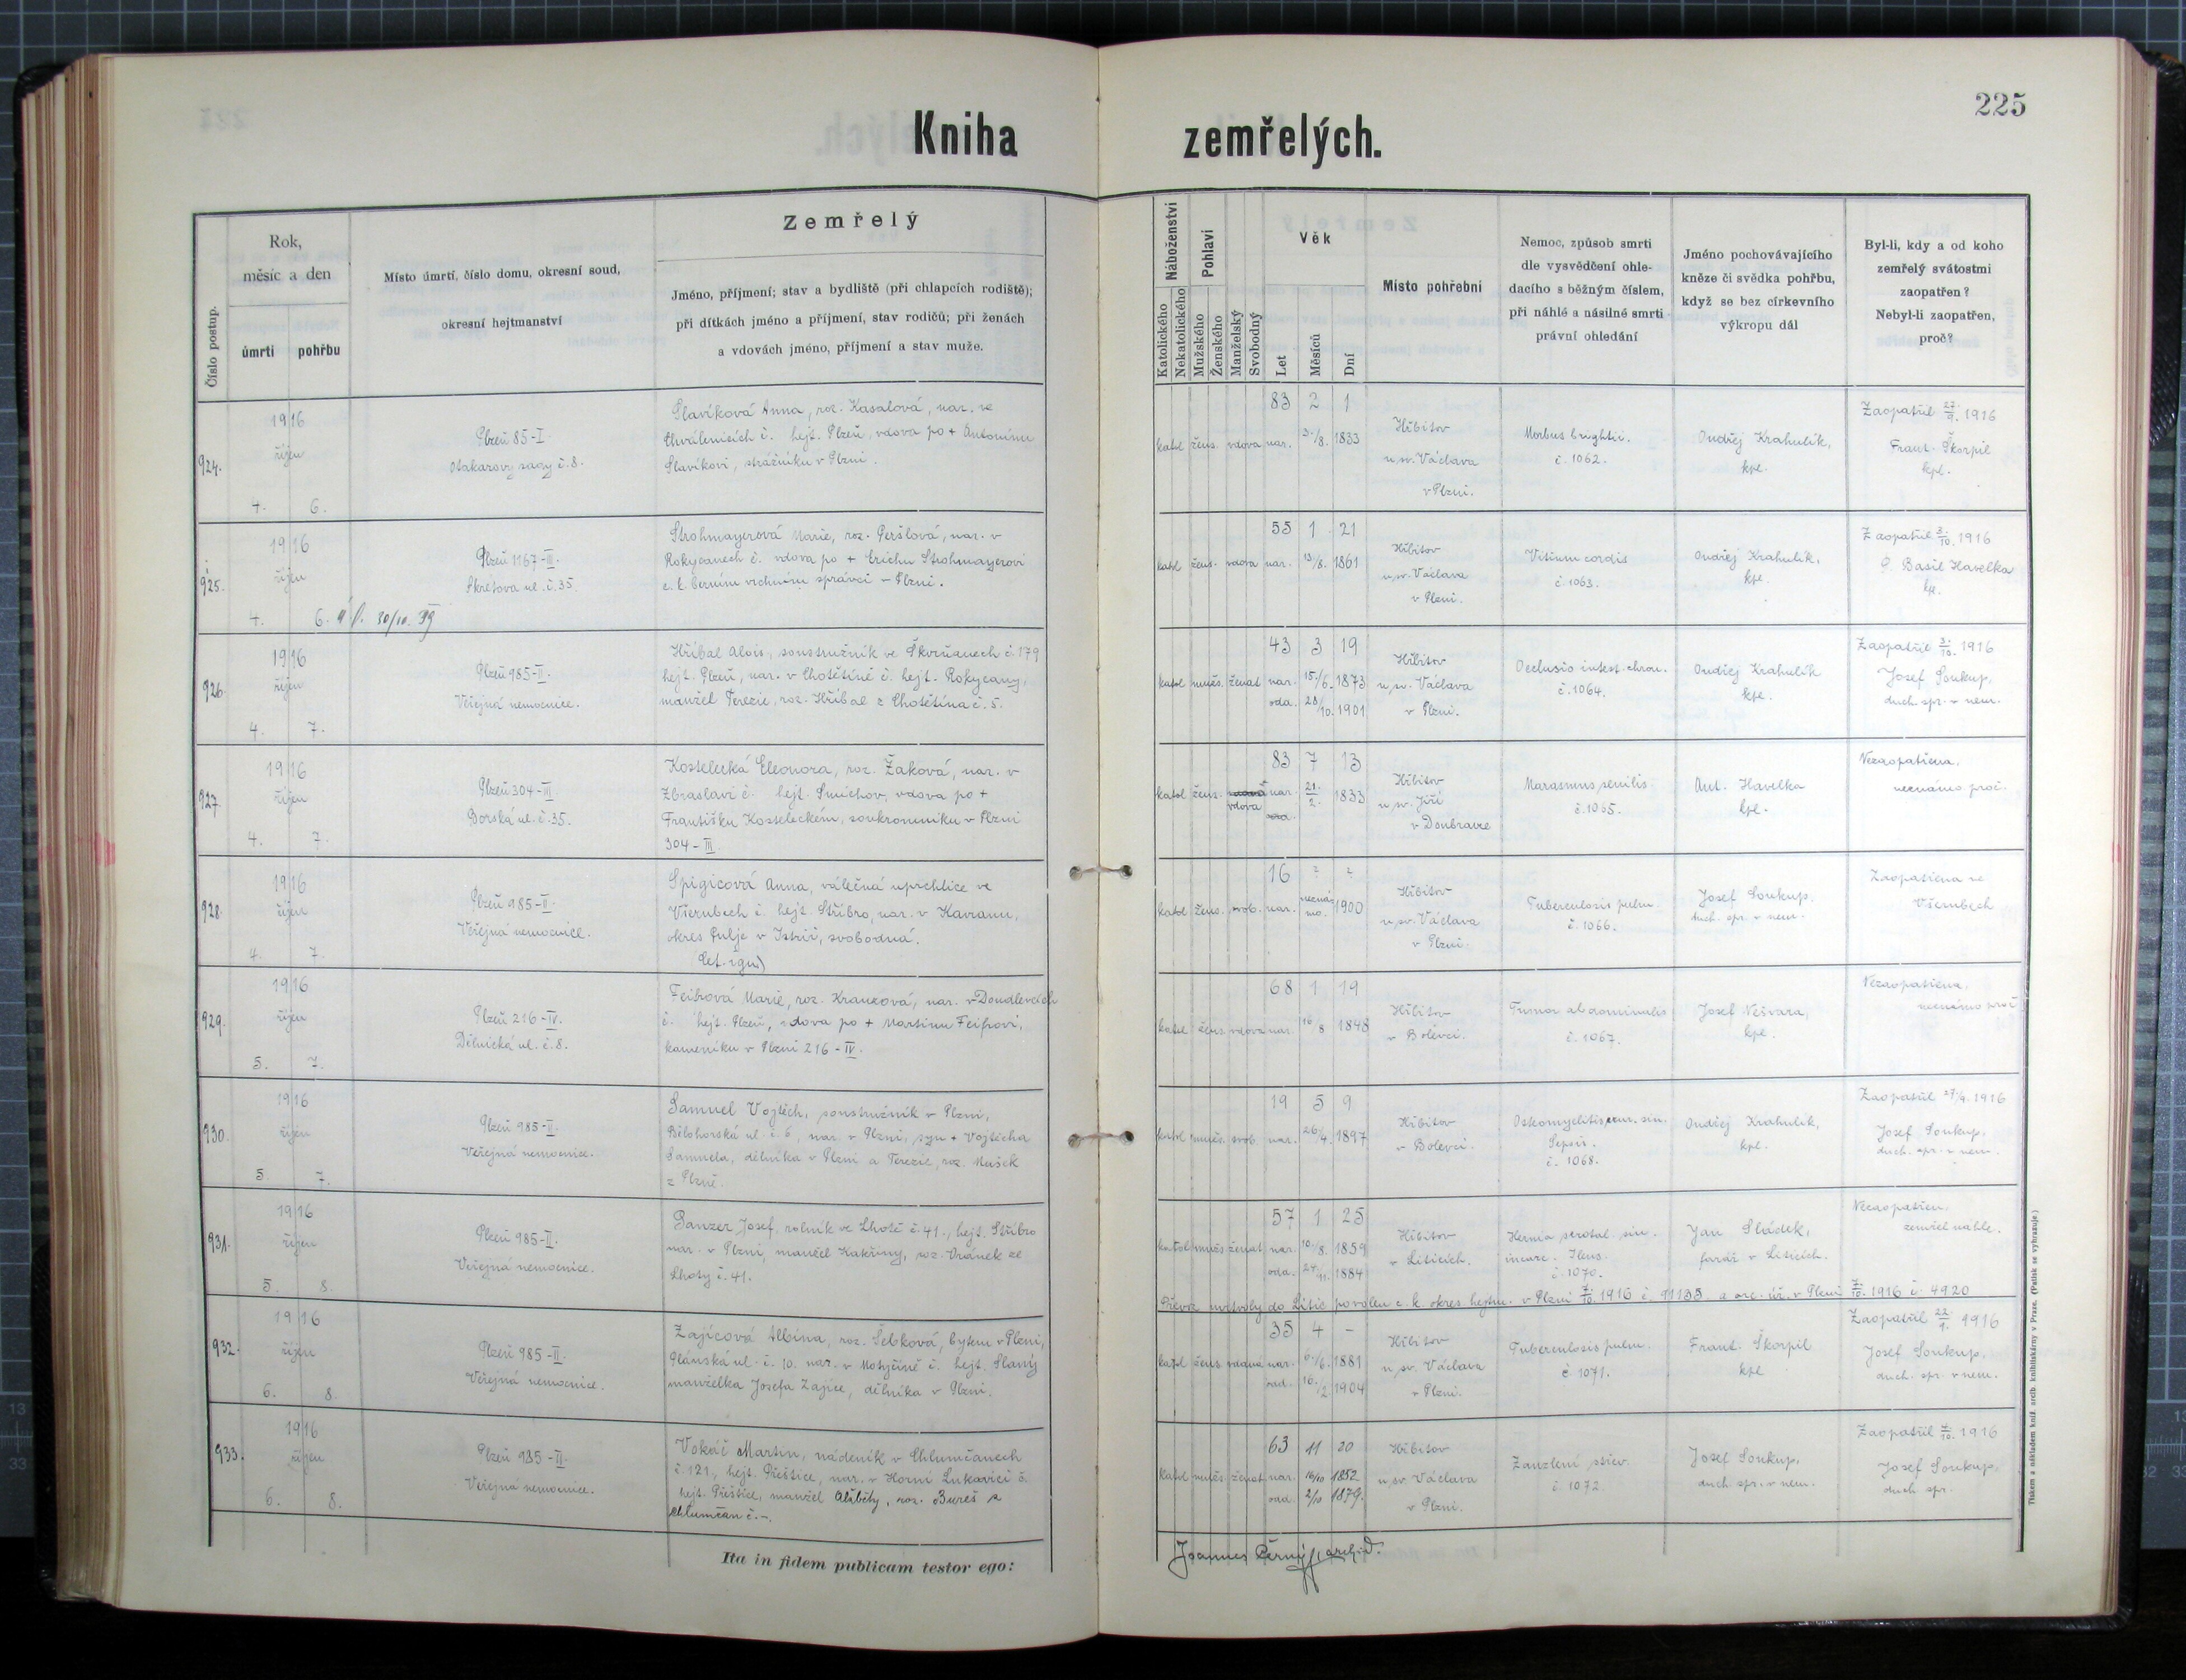 225
Kniha zemřelých.
Číslo postup.
Rok,
měsíc a den
úmrtí
pohřbu
Místo úmrtí, číslo domu, okresní soud,
okresní hejtmanství
Zemřelý
Jméno, příjmení; stav a bydliště (při chlapcích rodiště);
při dítkách jméno a příjmení, stav rodičů; při ženách
a vdovách jméno, příjmení a stav muže.
Náboženství
Katolického
Nekatolického
Pohlaví
Mužského
Ženského
Manželský
Svobodný
Věk
Let
Měsíců
Dní
Místo pohřební
Nemoc, způsob smrti
dle vysvědčení ohle-
dacího s běžným číslem,
při náhlé a násilné smrti
právní ohledání
Jméno pochovávajícího
kněze či svědka pohřbu,
když se bez církevního
výkropu dál
Byl-li, kdy a od koho
zemřelý svátostmi
zaopatřen?
Nebyl-li zaopatřen,
proč?
924.
1916
říjen
4. 6.
Plzeň 85-I
Otakarovy sady č. 8.
Slavíková Anna, roz. Kasalová, nar. ve
Chválenicích č. hejt. Plzeň, vdova po + Antonínu
Slavíkovi, strážníku v Plzni.
katol žens. vdova
83 2 1
nar. 3./8. 1833
Hřbitov
u sv. Václava
v Plzni.
Morbus brightii.
č. 1062.
Ondřej Krahulík,
kpl.
Zaopatřil 27./9. 1916
Frant. Škorpil
kpl.
925.
1916
říjen
4. 6.
30/10. 39
Plzeň 1167-III.
Skrétova ul. č. 35.
Strohmayerová Marie, roz. Peršlová, nar. v
Rokycanech č. vdova po + Erichu Strohmayerovi
c. k. berním vrchním správci v Plzni.
katol žens. vdova
55 1 21
nar. 13./8. 1861
Hřbitov
u sv. Václava
v Plzni.
Vitium cordis
č. 1063.
Ondřej Krahulík,
kpl.
Zaopatřil 3./10. 1916
P. Basil Havelka
kpl.
926.
1916
říjen
4. 7.
Plzeň 985-II.
Veřejná nemocnice.
Hřibal Alois, soustružník ve Škvrňanech č. 179
hejt. Plzeň, nar. v Chotětíně č. hejt. Rokycany,
manžel Terezie, roz. Hřibal z Chotětína č. 5.
katol mužs. ženat
43 3 19
nar. 15./6. 1873
oda. 28/10. 1901
Hřbitov
u sv. Václava
v Plzni.
Occlusio intest. chron.
č. 1064.
Ondřej Krahulík
kpl.
Zaopatřil 3./10. 1916
Josef Soukup,
duch. spr. v nem.
927.
1916
říjen
4. 7.
Plzeň 304-III
Borská ul. č. 35.
Kostelecká Eleonora, roz. Žaková, nar. v
Zbraslavi č. hejt. Smíchov, vdova po +
Františku Kosteleckém, soukromníku v Plzni
304-III.
katol žens. vdova
83 7 13
nar. 21./2. 1833
Hřbitov
u sv. Jiří
v Doubravce
Marasmus senilis
č. 1065.
Ant. Havelka
kpl.
Nezaopatřena,
neznámo proč.
928.
1916
říjen
4. 7.
Plzeň 985-II.
Veřejná nemocnice.
Spigicová Anna, válečná uprchlice ve
Všerubech č. hejt. Stříbro, nar. v Kavranu,
okres Pulje v Istrii, svobodná.
katol žens. svob.
16 ? ?
nar. neznámo. 1900
Hřbitov
u sv. Václava
v Plzni.
Tuberculosis pulm.
č. 1066.
Josef Soukup,
duch. spr. v nem.
Zaopatřena ve
Všerubech
929.
1916
říjen
5. 7.
Plzeň 216-IV.
Dělnická ul. č. 8.
Feifrová Marie, roz. Krausová, nar. v Doudlevcích
č. hejt. Plzeň, vdova po + Martinu Feifrovi,
kameníku v Plzni 216-IV.
katol žens. vdova
68 1 19
nar. 16 8 1848
Hřbitov
v Bolevci.
Tumor abdominalis
č. 1067.
Josef Nešvara,
kpl.
Nezaopatřena,
neznámo proč
930.
1916
říjen
5. 7.
Plzeň 985-II.
Veřejná nemocnice.
Samuel Vojtěch, soustružník v Plzni,
Bělohorská ul. č. 6, nar. v Plzni, syn + Vojtěcha
Samuela, dělníka v Plzni a Terezie, roz. Mušek
z Plzně.
katol mužs. svob.
19 5 9
nar. 26./4. 1897
Hřbitov
v Bolevci.
Osteomyelitis crur. sin.
Sepsis.
č. 1068.
Ondřej Krahulík,
kpl.
Zaopatřil 27./9. 1916
Josef Soukup,
duch. spr. v nem.
931.
1916
říjen
5. 8.
Plzeň 985-II.
Veřejná nemocnice.
Panzer Josef, rolník ve Lhotě č. 41., hejt. Stříbro
nar. v Plzni, manžel Kateřiny, roz. Vránek ze
Lhoty č. 41.
katol mužs ženat
57 1 25
nar. 10./8. 1859
oda. 24./11. 1884
Hřbitov
v Liticích.
Hernia scrotal. sin.
incarc. Ileus.
č. 1070.
Jan Sládek,
farář v Liticích.
Nezaopatřen,
zemřel náhle.
Převoz mrtvoly do Litic povolen c. k. okres. hejtm. v Plzni 7./10. 1916 č. 91135 a arc. úř. v Plzni 7./10. 1916 č. 4920
932.
1916
říjen
6. 8.
Plzeň 985-II.
Veřejná nemocnice.
Zajícová Albina, roz. Šebková, bytem v Plzni,
Plánská ul. č. 10. nar. v Motyčíně č. hejt. Slaný
manželka Josefa Zajíce, dělníka v Plzni.
katol žens vdaná
35 4 -
nar. 6./6. 1881
odd. 16./2 1904
Hřbitov
u sv. Václava
v Plzni.
Tuberculosis pulm.
č. 1071.
Frant. Škorpil
kpl
Zaopatřil 22./9. 1916
Josef Soukup,
duch. spr. v nem.
933.
1916
říjen
6. 8.
Plzeň 985-II.
Veřejná nemocnice.
Vokáč Martin, nádeník v Chlumčanech
č. 121, hejt. Přeštice, nar. v Horní Lukavici č.
hejt. Přeštice, manžel Alžběty, roz. Bureš z
Chlumčan č. -.
katol mužs. ženat
63 11 20
nar. 16/10 1852
odd. 2/10 1879.
Hřbitov
u sv. Václava
v Plzni.
Zauzlení střev.
č. 1072.
Josef Soukup,
duch. spr. v nem.
Zaopatřil 7./10. 1916
Josef Soukup,
duch. spr.
Ita in fidem publicam testor ego:
Joannes Černý, archid.
Tiskem a nákladem kníž. arcib. knihtiskárny v Praze. (Patisk se vyhrazuje.)